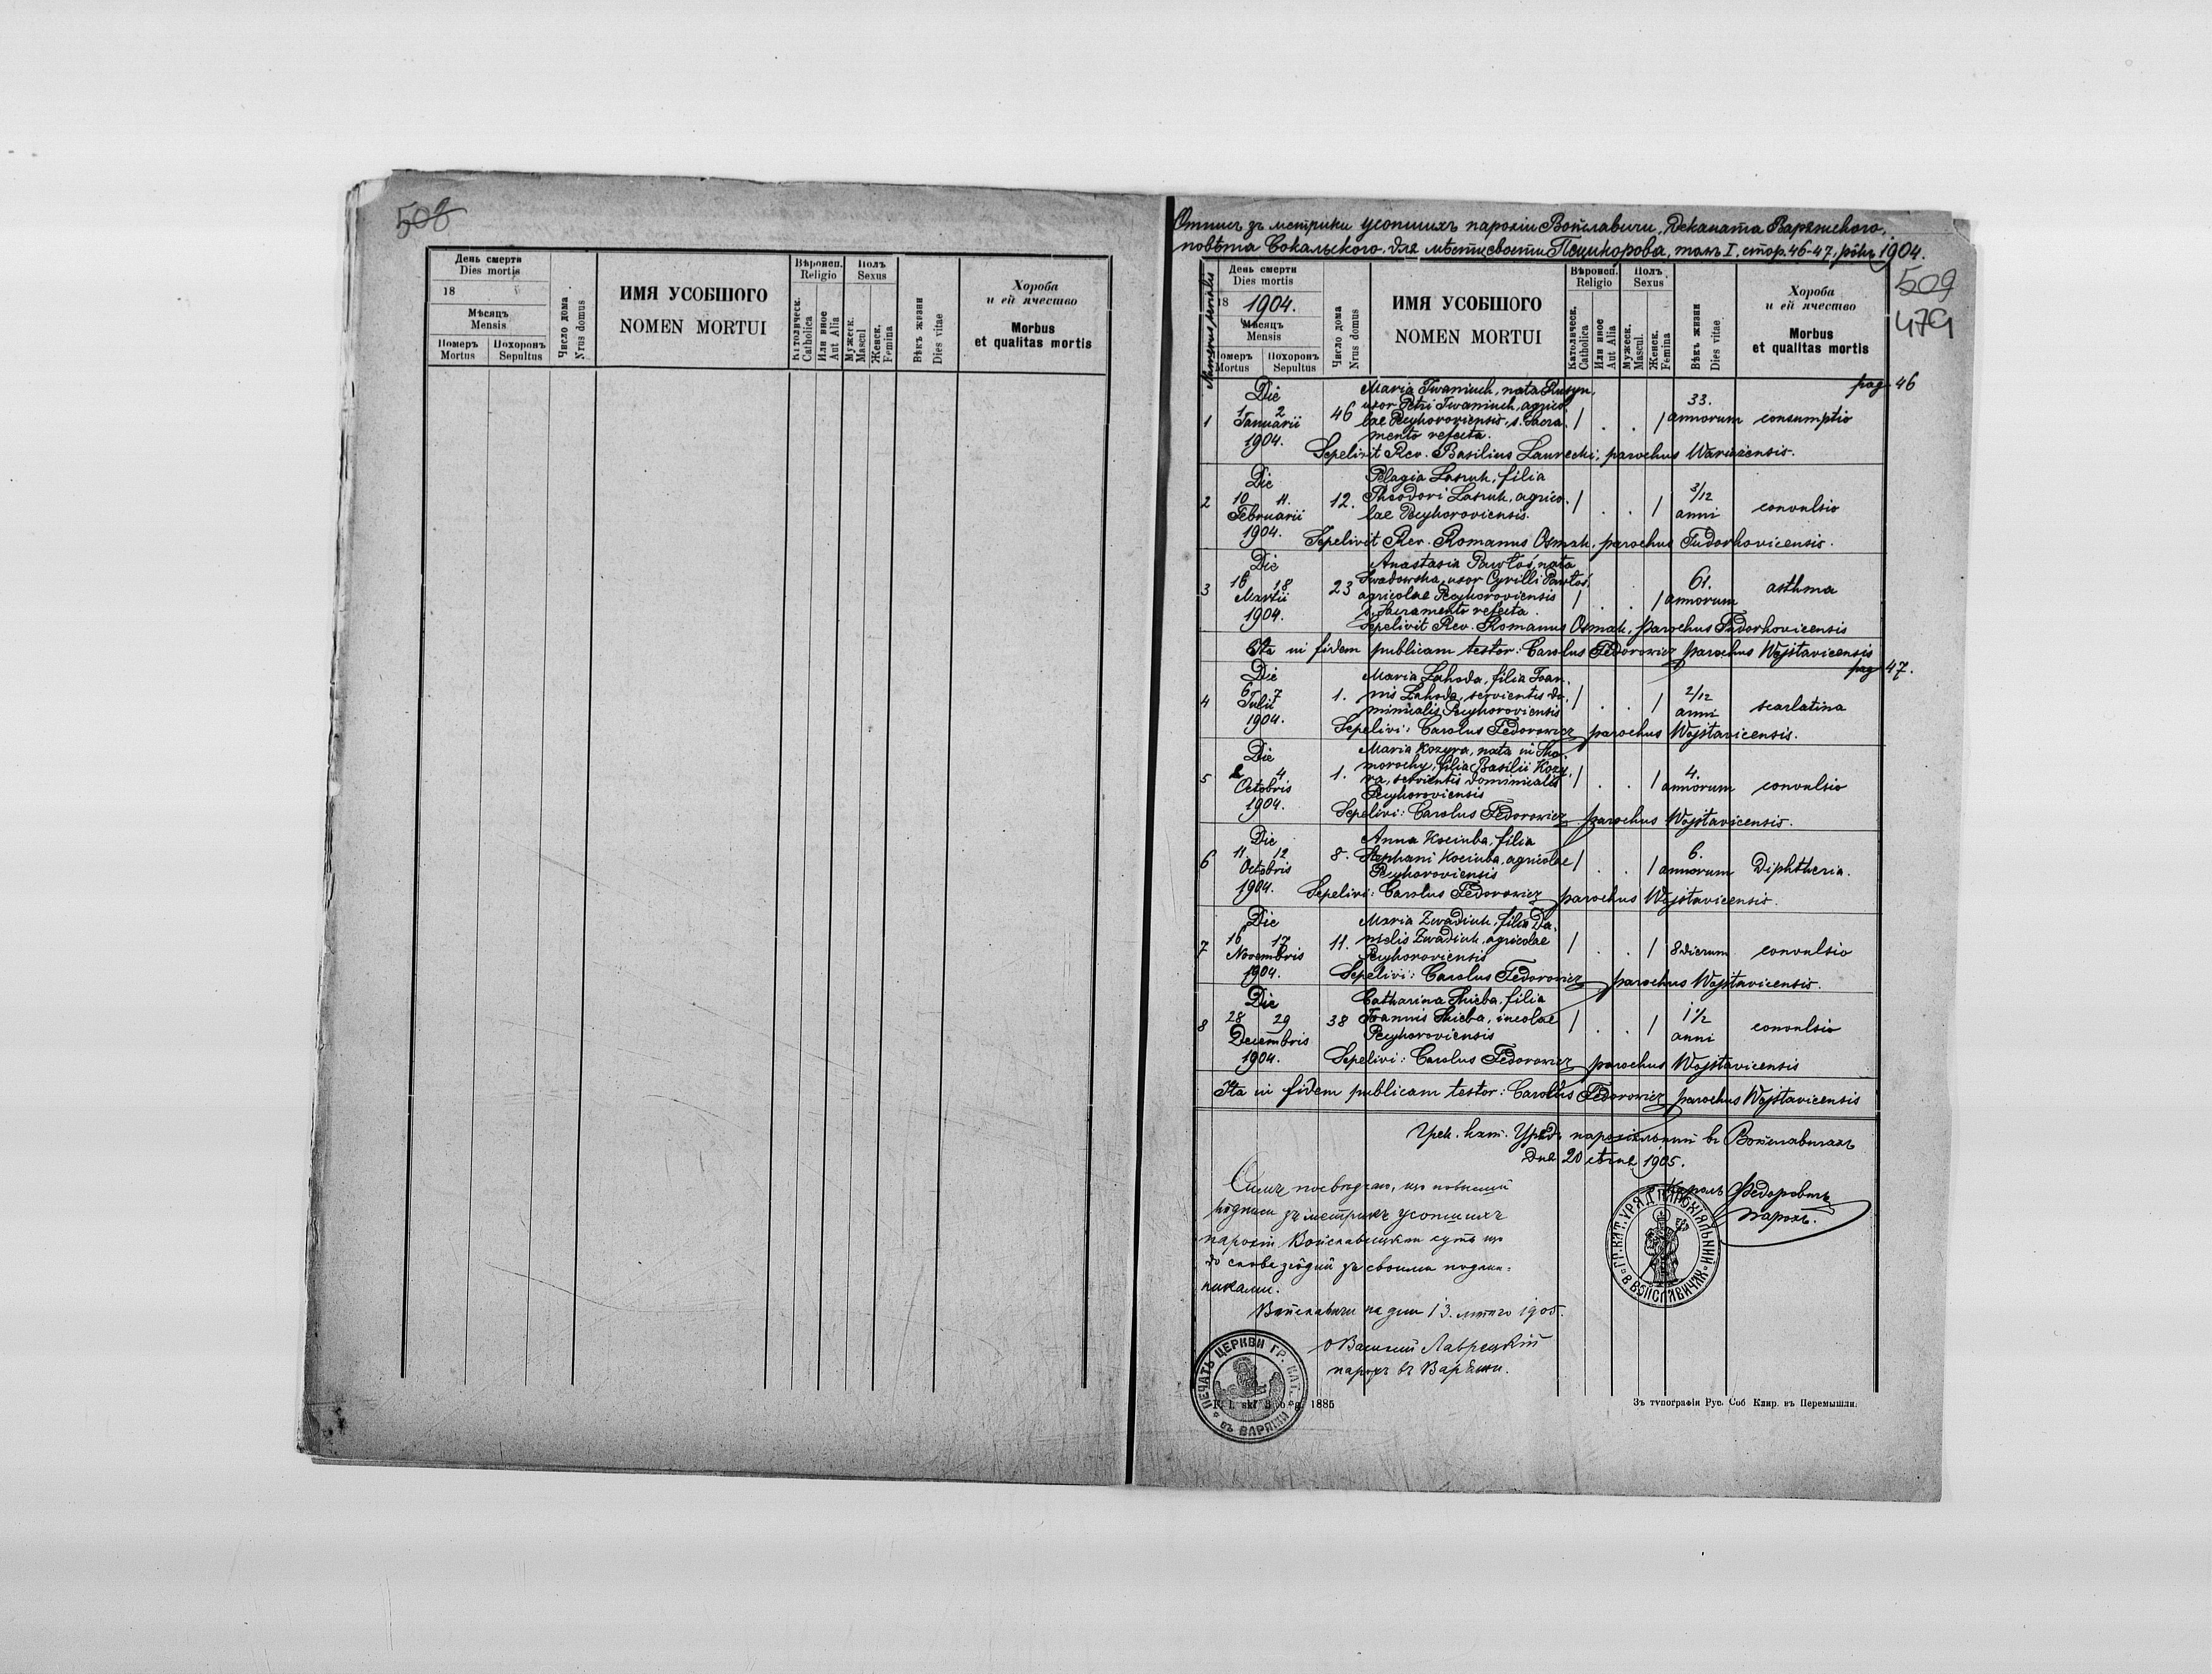 508
День смерти
Dies mortis
18
Мѣсяцъ
Mensis
Померъ
Mortus
Похоронъ
Sepultus
Число дома
Nrus domus
ИМЯ УСОБШОГО
NOMEN MORTUI
Вѣроисп.
Religio
Католическ.
Catholica
Или иное
Aut Alia
Полъ
Sexus
Мужеск.
Mascul
Женск.
Femina
Вѣкъ жизни
Dies vitae
Хороба
и ей ячество
Morbus
et qualitas mortis
Отпись зъ метрики усопшихъ парохіи Войславичи, Деканата Варяжского,
повѣта Сокальского для мѣстцевости Пецихорова, томъ I, стор. 46-47, рôкъ 1904.
509
479
Numerus serialis
День смерти
Dies mortis
18 1904.
Мѣсяцъ
Mensis
Померъ
Mortus
Похоронъ
Sepultus
Число дома
Nrus domus
ИМЯ УСОБШОГО
NOMEN MORTUI
Вѣроисп.
Religio
Католическ.
Catholica
Или иное
Aut Alia
Полъ
Sexus
Мужеск.
Mascul.
Женск.
Femina
Вѣкъ жизни
Dies vitae
Хороба
и ей ячество
Morbus
et qualitas mortis
pag. 46
Die Maria Iwaniuch, nata
1 1 2 Januarii 46 uxor Petri Iwaniuch, agrico-
lae Pecyhoroviensis, s. Sacra- / . . / 33. annorum consumptio
1904. mento refecta.
Sepelivit Rev. Basilius Laurecki, parochus
Die Pelagia Lasruk, filia
2 10 11. Februarii 12. Theodori Lasruk, agrico- / . . / 3/12 anni convulsio
lae Pecyhoroviensis.
1904. Sepelivit Rev. Romanus Osmak, parochus Tudorkovicensis.
Die Anastasia Pawłoś, nata
3 16 18 Martii 23 Swadowska, uxor Cyrilli Pawłoś,
agricolae Pecyhoroviensis / . . / 61. annorum asthma
1904. s. Sacramento refecta.
Sepelivit Rev. Romanus Osmak, parochus Tudorkovicensis
Ita in fidem publicam testor: Carolus Fedorowicz parochus Wojstavicensis
pag. 47.
Die Maria Lahoda, filia Joan-
4 6 7 Julii 1. nis Lahoda, servientis do- / . . / 2/12 anni scarlatina
minicalis Pecyhoroviensis
1904. Sepelivi: Carolus Fedorowicz parochus Wojstavicensis.
Die Maria Kozyra, nata in Sko-
morochy, filia Basilii Kozy-
5 2 4 Octobris 1. ra, servientis dominicalis / . . / 4. annorum convulsio
Pecyhoroviensis
1904. Sepelivi: Carolus Fedorowicz parochus Wojstavicensis.
Die Anna Kociuba, filia
6 11 12 Octobris 8. Stephani Kociuba, agricolae / . . / 6. annorum Diphtheria.
Pecyhoroviensis
1904. Sepelivi: Carolus Fedorowicz parochus Wojstavicensis.
Die Maria Zwadiuk, filia Da-
7 16 17 Novembris 11. nielis Zwadiuk, agricolae / . . / 8 dierum convulsio
Pecyhoroviensis
1904. Sepelivi: Carolus Fedorowicz parochus Wojstavicensis.
Die Catharina Skiba, filia
8 28 29 Decembris 38 Joannis Skiba, incolae / . . / 1 1/2 anni convulsio
Pecyhoroviensis
1904. Sepelivi: Carolus Fedorowicz parochus Wojstavicensis
Ita in fidem publicam testor: Carolus Fedorowicz parochus Wojstavicensis
Грек. кат. Урядъ парохіяльный въ Войславичахъ
дня 20 січня 1905.
Кароль Федоровичъ
парохъ.
ГР. КАТ. УРЯД ПАРОХІЯЛЬНИЙ В ВОЙСЛАВИЧАХ
Симъ посвѣдчаю, що повысшій
підписи зъ метрикъ усопшихъ
парохіи Войславицкои суть що
до слова згôдни зъ своими подлин-
никами.
Войславичи на дни 13. лютого 1905.
о Василій Лаврецкій
парохъ въ Варяжи.
ПЕЧАТЬ ЦЕРКВИ ГР. КАТ. въ ВАРЯЖИ
1885
Зъ типографіи Рус. Соб Клир. въ Перемышли.